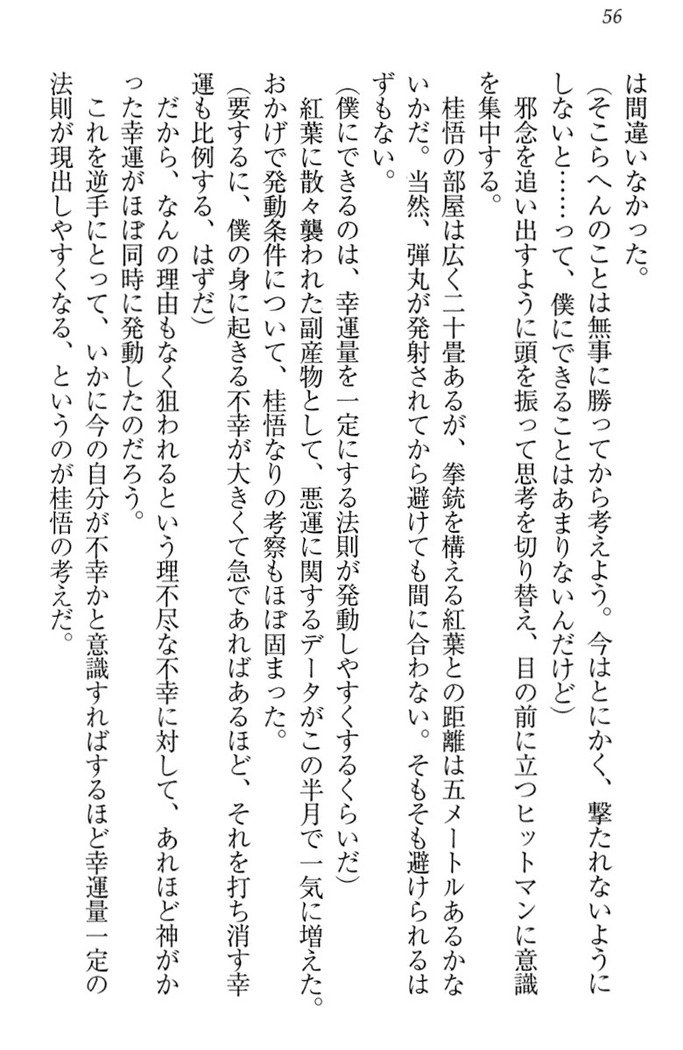 56
は間違いなかった。
（そこらへんのことは無事に勝ってから考えよう。今はとにかく、撃たれないように
しないと……って、僕にできることはあまりないんだけど）
邪念を追い出すように頭を振って思考を切り替え、目の前に立つヒットマンに意識
を集中する。
桂悟の部屋は広く二十畳あるが、拳銃を構える紅葉との距離は五メートルあるかな
いかだ。当然、弾丸が発射されてから避けても間に合わない。そもそも避けられるは
ずもない。
（僕にできるのは、幸運量を一定にする法則が発動しやすくするくらいだ）
紅葉に散々襲われた副産物として、悪運に関するデータがこの半月で一気に増えた。
おかげで発動条件について、桂悟なりの考察もほぼ固まった。
（要するに、僕の身に起きる不幸が大きくて急であればあるほど、それを打ち消す幸
運も比例する、はずだ）
だから、なんの理由もなく狙われるという理不尽な不幸に対して、あれほど神がか
った幸運がほぼ同時に発動したのだろう。
これを逆手にとって、いかに今の自分が不幸かと意識すればするほど幸運量一定の
法則が現出しやすくなる、というのが桂悟の考えだ。